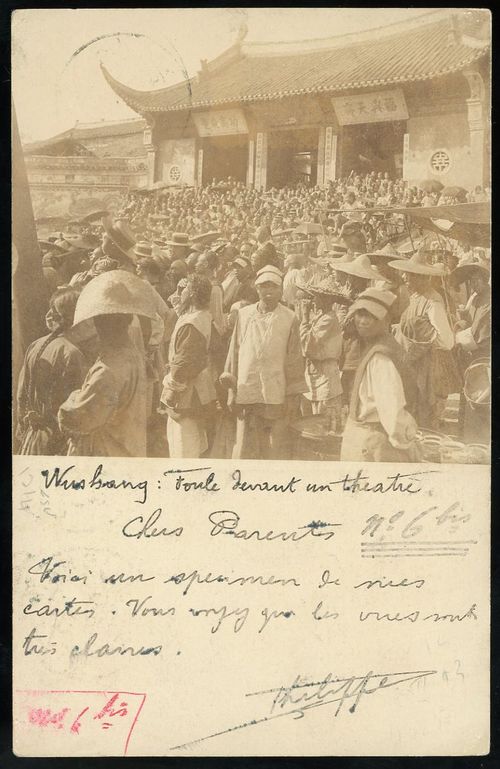 Wushang : Foule devant un theatre.
Chers Parents nº 6 bis
Voici un specimen de mes
cartes. Vous voyez que les vues sont
très claires.
Philippe
nº 6 bis